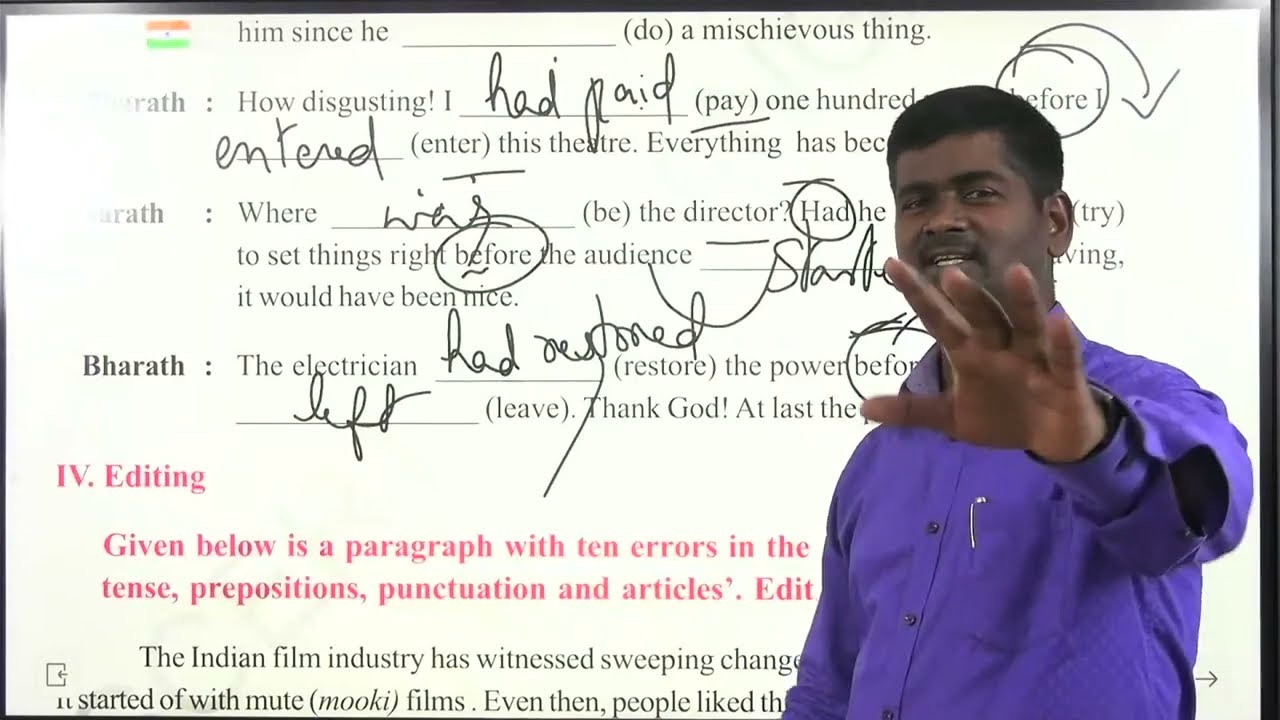 him since he ____________ (do) a mischievous thing.
: How disgusting! I had paid (pay) one hundred before I
entered (enter) this theatre. Everything has
: Where was (be) the director? Had he (try)
to set things right before the audience
it would have been nice.
Bharath : The electrician had restored (restore) the power
left (leave). Thank God! At last the
IV. Editing
Given below is a paragraph with ten errors in the
tense, prepositions, punctuation and articles’. Edit
The Indian film industry has witnessed sweeping
it started of with mute (mooki) films . Even then, people liked